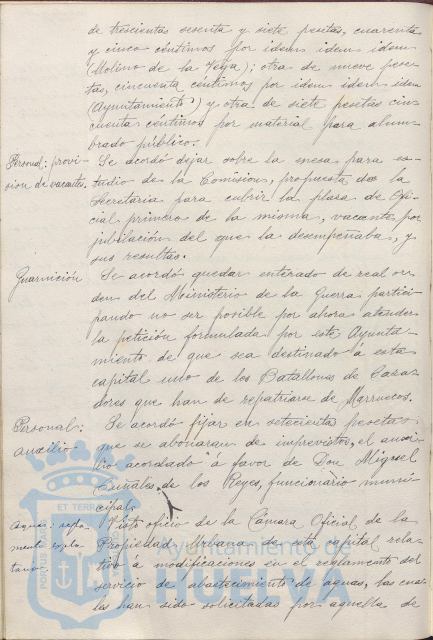 de trescientas sesenta y siete pesetas, cuarenta
y cinco céntimos por idem idem idem
(Molino de la Vega); otra de nueve pese-
tas, cincuenta céntimos por idem idem idem
(Ayuntamiento) y otra de siete pesetas cin-
cuenta céntimos por material para alum-
brado público.
Personal: provi-
sion de vacantes.
Se acordó dejar sobre la mesa para es-
tudio de la Comision, propuesta de la
Secretaria para cubrir la plaza de Ofi-
cial primero de la misma, vacante por
jubilación del que la desempeñaba, y
sus resultas.
Guarnición
Se acordó quedar enterado de real or-
den del Ministerio de la Guerra partici-
pando no ser posible por ahora atender
la petición formulada por este Ayunta-
miento de que sea destinado á esta
capital uno de los Batallones de Caza-
dores que han de repatriarse de Marruecos.
Personal:
auxilio
Se acordó fijar en setecientas pesetas,
que se abonaran de imprevistos, el auxi-
lio acordado á favor de Don Miguel
de los Reyes, funcionario muni-
cipal.
Aguas: regla-
mento
Visto oficio de la Cámara Oficial de la
Propiedad Urbana de esta capital rela-
tivo á modificaciones en el reglamento del
servicio de abastecimiento de aguas, las cua-
les han sido solicitadas por aquella de
Ayuntamiento de
HUELVA